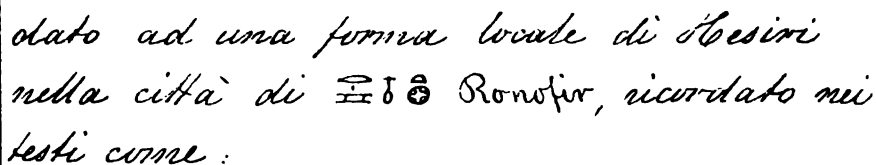 dato ad una forma locale di Hesiri
nella città di Ronofir, ricordato nei
testi come: